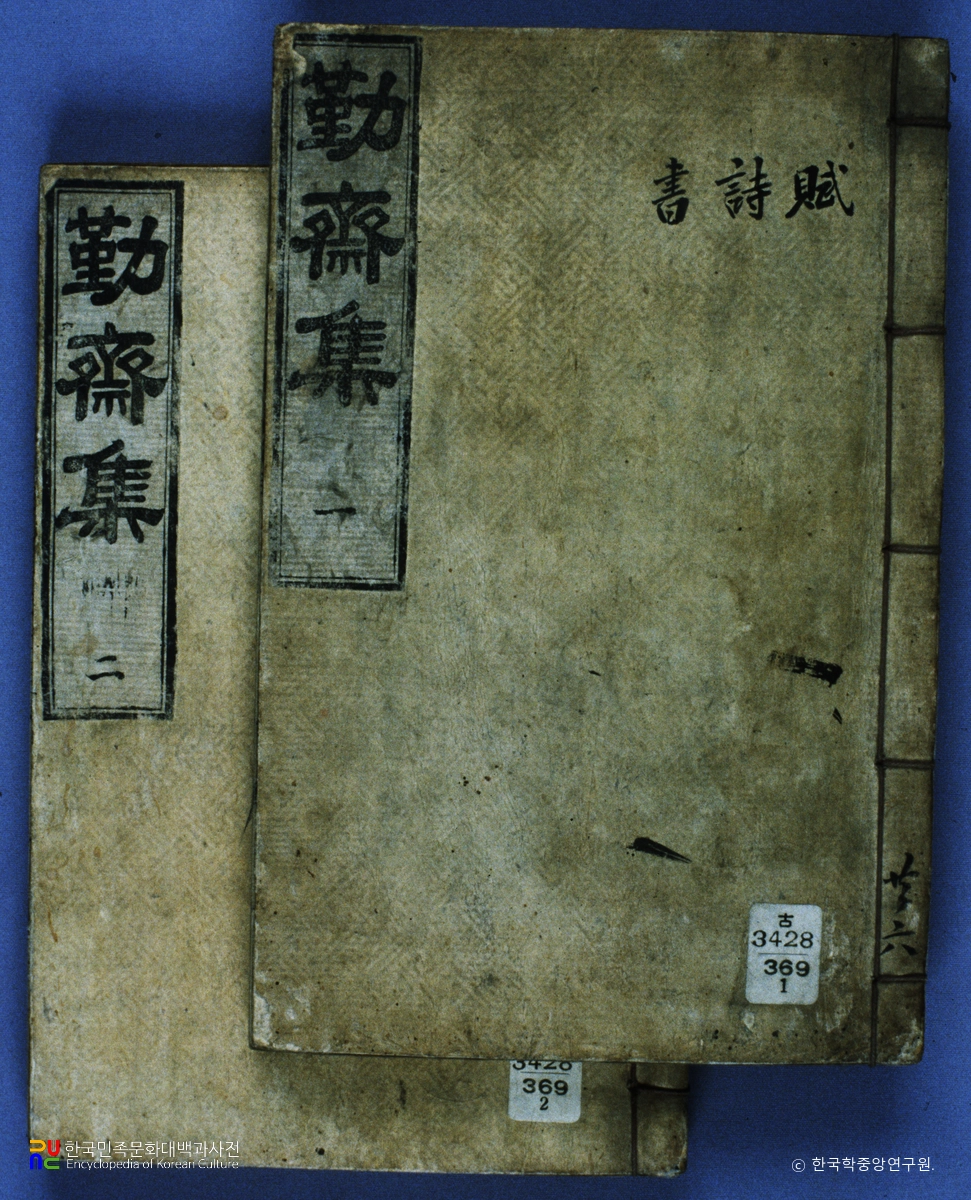 勤齋集 一
賦詩書
古
3428
369
1
共六
勤齋集 二
3428
369
2
한국민족문화대백과사전
Encyclopedia of Korean Culture
© 한국학중앙연구원.